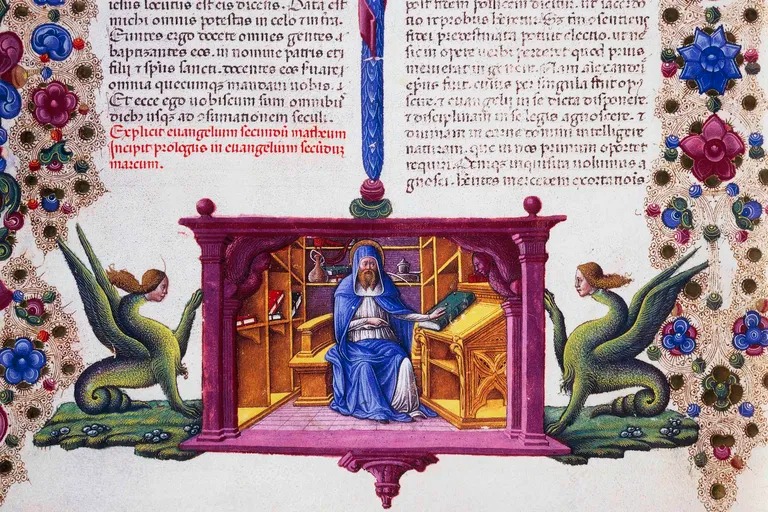 iesus locutus est eis dicens. Data est
michi omnis potestas in celo et in t̄ra.
Euntes ergo docete omnes gentes
baptizantes eos. in nomine patris et
filii et sp̄us sancti. docentes eos
omnia quecumque mandaui uobis.
Et ecce ego uobiscum sum omnibꝰ
diebꝰ usqꝫ ad ꝯsumationem seculi.
Explicit euangelium secundū matheum
Incipit prologus in euangelium secūduꝫ
marcum.
post fidem pollicem dicitur. ut sacerdo
tio reprobus
fidei predestinata potuit electio. ut
sic in opere uerbi perderet quod prius
meruerat in genere. Nam alexandrie
fuit. cuius per singula
et euangelii in se dicta disponere.
et disciplinam in se legis agnoscere. et
diuinam in carne domini intelligere
naturam. que in nos primum oportet
requiri. inquisita uolumus a
gnosci. mercedem exortationis